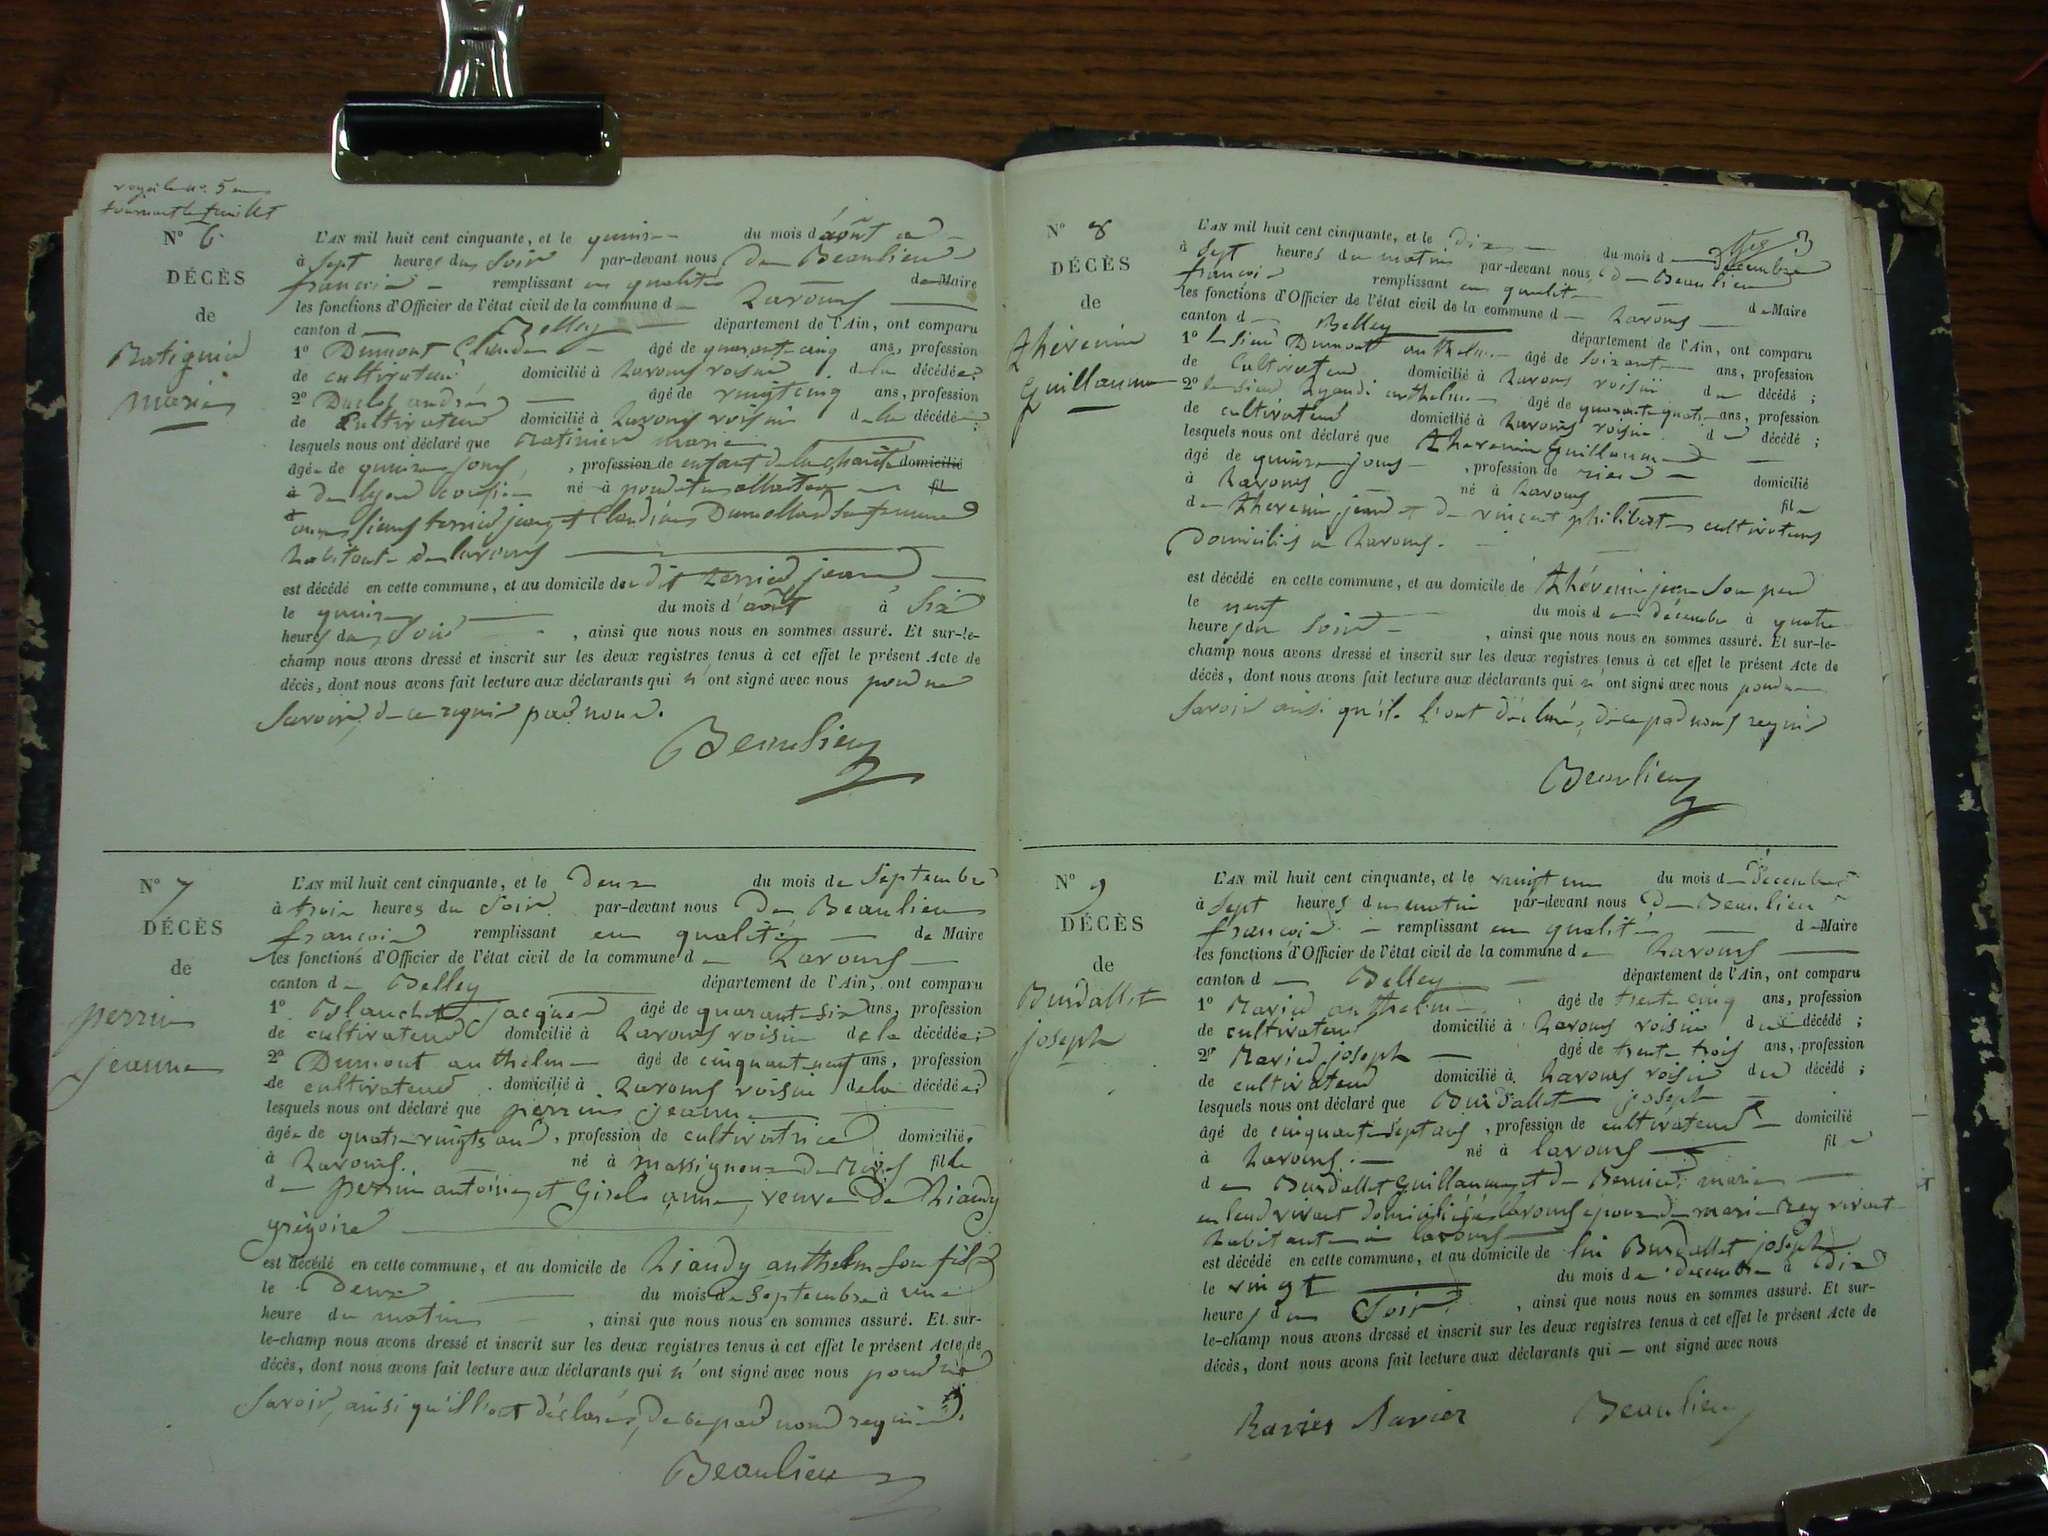 voyez le n° 5 en
tournant le feuillet
N° 6
DÉCÈS
de
Ratignier
marie
L'AN mil huit cent cinquante, et le quinze du mois d'août
à sept heures du soir par-devant nous De Beaulieu
françois remplissant en qualité de Maire
les fonctions d'Officier de l'état civil de la commune de Lavours
canton de Belley département de l'Ain, ont comparu
1° Dumont Claude âgé de quarante cinq ans, profession
de cultivateur domicilié à Lavours voisin de la décédée;
2° Duclos andré âgé de vingt cinq ans, profession
de Cultivateur domicilié à Lavours voisin de la décédée;
lesquels nous ont déclaré que Ratinier marie
âgée de quinze jours, profession de enfant de la charité domicilié
à de lyon né à fil
terrier jean et Claudine Dumollard sa femme
habitants de lavours
est décédé en cette commune, et au domicile de dit terrier jean
le quinze du mois d'août à six
heures du soir, ainsi que nous nous en sommes assuré. Et sur-le-
champ nous avons dressé et inscrit sur les deux registres tenus à cet effet le présent Acte de
décès, dont nous avons fait lecture aux déclarants qui n'ont signé avec nous pour ne
savoir, de ce requis par nous.
Beaulieu
N° 7
DÉCÈS
de
perrin
jeanne
L'AN mil huit cent cinquante, et le Deux du mois de Septembre
à trois heures du soir par-devant nous De Beaulieu
françois remplissant en qualité de Maire
les fonctions d'Officier de l'état civil de la commune de Lavours
canton de Belley département de l'Ain, ont comparu
1° Blanchet jacques âgé de quarante six ans, profession
de cultivateur domicilié à Lavours voisin de la décédée;
2° Dumont anthelme âgé de cinquante neuf ans, profession
de cultivateur domicilié à Lavours voisin de la décédée;
lesquels nous ont déclaré que perrin jeanne
âgée de quatre vingts ans, profession de cultivatrice domiciliée
à Lavours né à massigneux de Rives fille
de perrin antoine et Gisel anne, veuve de Liaudy
grégoire
est décédé en cette commune, et au domicile de Liaudy anthelme son fils
le Deux du mois de Septembre à une
heure du matin, ainsi que nous nous en sommes assuré. Et sur-
le-champ nous avons dressé et inscrit sur les deux registres tenus à cet effet le présent Acte de
décès, dont nous avons fait lecture aux déclarants qui n'ont signé avec nous pour ne
savoir, ainsi qu'ils l'ont déclaré, de ce par nous requis.
Beaulieu
N° 8
DÉCÈS
de
thevenin
Guillaume
L'AN mil huit cent cinquante, et le dix du mois de décembre
à sept heures du matin par-devant nous De Beaulieu
françois remplissant en qualité de Maire
les fonctions d'Officier de l'état civil de la commune de Lavours
canton de Belley département de l'Ain, ont comparu
1° le sieur Dumont anthelme âgé de soixante ans, profession
de cultivateur domicilié à Lavours voisin du décédé;
2° le sieur Lyaudi anthelme âgé de quarante quatre ans, profession
de cultivateur domicilié à Lavours voisin du décédé;
lesquels nous ont déclaré que thevenin Guillaume
âgé de quinze jours, profession de rien domicilié
à Lavours né à Lavours fils
de thevenin jean et de vincent philiberte cultivateurs
Domiciliés à Lavours.
est décédé en cette commune, et au domicile de thévenin jean son père
le neuf du mois de décembre à quatre
heures du soir, ainsi que nous nous en sommes assuré. Et sur-le-
champ nous avons dressé et inscrit sur les deux registres tenus à cet effet le présent Acte de
décès, dont nous avons fait lecture aux déclarants qui n'ont signé avec nous pour ne
savoir ainsi qu'ils l'ont déclaré, de ce par nous requis
Beaulieu
N° 9
DÉCÈS
de
Burdallet
joseph
L'AN mil huit cent cinquante, et le vingt un du mois de décembre
à sept heures du matin par-devant nous De Beaulieu
françois remplissant en qualité de Maire
les fonctions d'Officier de l'état civil de la commune de Lavours
canton de Belley département de l'Ain, ont comparu
1° Ravier anthelme âgé de trente cinq ans, profession
de cultivateur domicilié à Lavours voisin du décédé;
2° Ravier joseph âgé de trente trois ans, profession
de cultivateur domicilié à Lavours voisin du décédé;
lesquels nous ont déclaré que Burdallet joseph
âgé de cinquante sept ans, profession de cultivateur domicilié
à Lavours né à lavours fils
de Burdallet Guillaume et de Bernier marie
en leur vivant domiciliés à lavours époux de marie Rey vivant
habitante à lavours
est décédé en cette commune, et au domicile de lui Burdallet joseph
le vingt du mois de décembre à dix
heures du soir, ainsi que nous nous en sommes assuré. Et sur-
le-champ nous avons dressé et inscrit sur les deux registres tenus à cet effet le présent Acte de
décès, dont nous avons fait lecture aux déclarants qui — ont signé avec nous
Ravier Ravier Beaulieu